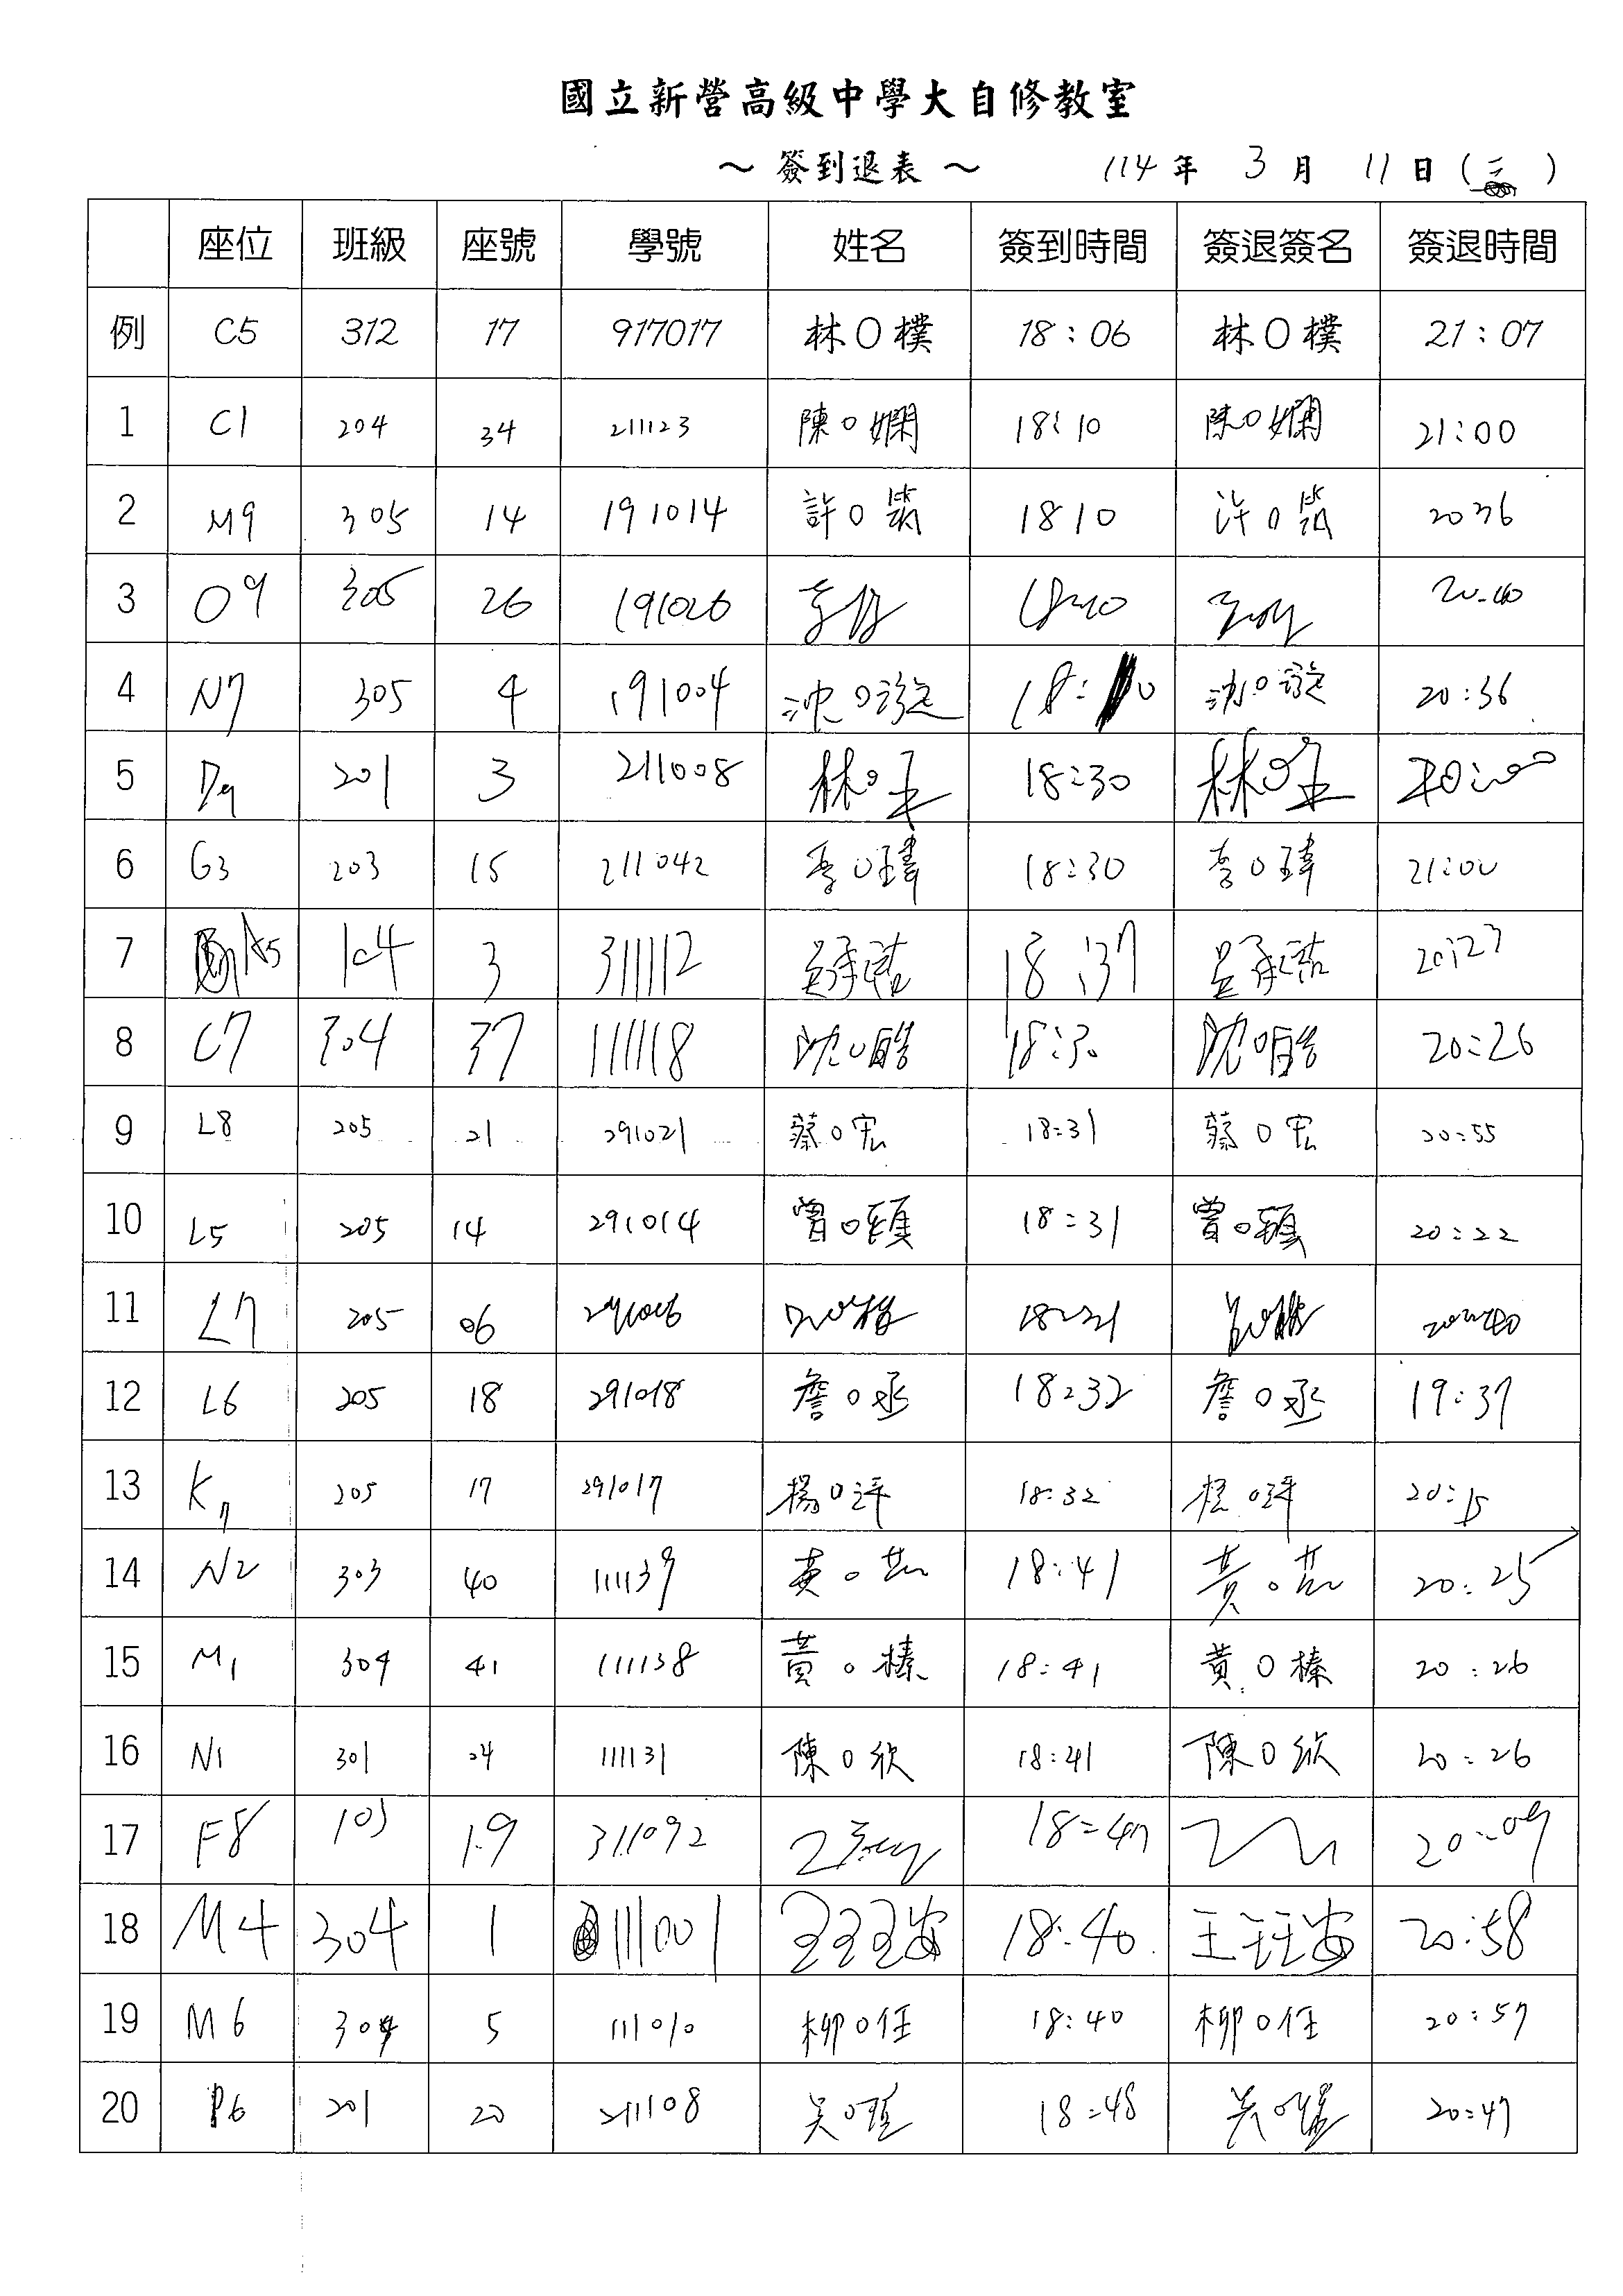 國立新營高級中學大自修教室
～ 簽到退表 ～ 114 年 3 月 11 日 (二)
座位 班級 座號 學號 姓名 簽到時間 簽退簽名 簽退時間
例 C5 312 17 917017 林O樸 18:06 林O樸 21:07
1 C1 204 34 211123 陳O嫻 18:10 陳O嫻 21:00
2 M9 305 14 191014 許O筑 1810 许O筑 2036
3 O9 305 26 191026 20:40
4 N7 305 4 191004 沈O漩 18: 0 沈O漩 20:36
5 D9 201 3 211008 林O 18:30 林O 20:00
6 G3 203 15 211042 李O瑋 18:30 李O瑋 21:00
7 A5 104 3 311112 吳承祐 18:37 吳承祐 20:27
8 C7 304 37 111118 沈O皓 18:30 沈O皓 20:26
9 L8 205 21 291021 蔡O宏 18:31 蔡O宏 20:55
10 L5 205 14 291014 曾O穎 18:31 曾O穎 20:22
11 L7 205 06 291006 18:31
12 L6 205 18 291018 詹O丞 18:32 詹O丞 19:37
13 K7 205 17 291017 楊O評 18:32 O評 20:15
14 N2 303 40 111139 黃O 18:41 黃O 20:25
15 M1 304 41 111138 黃O榛 18:41 黃O榛 20:26
16 N1 301 24 111131 陳O欣 18:41 陳O欣 20:26
17 F8 103 19 311092 18:47 20:09
18 M4 304 1 111001 18:40 20:58
19 M6 304 5 111010 柳O任 18:40 柳O任 20:57
20 P6 201 20 211108 吳O 18:48 吳O 20:47